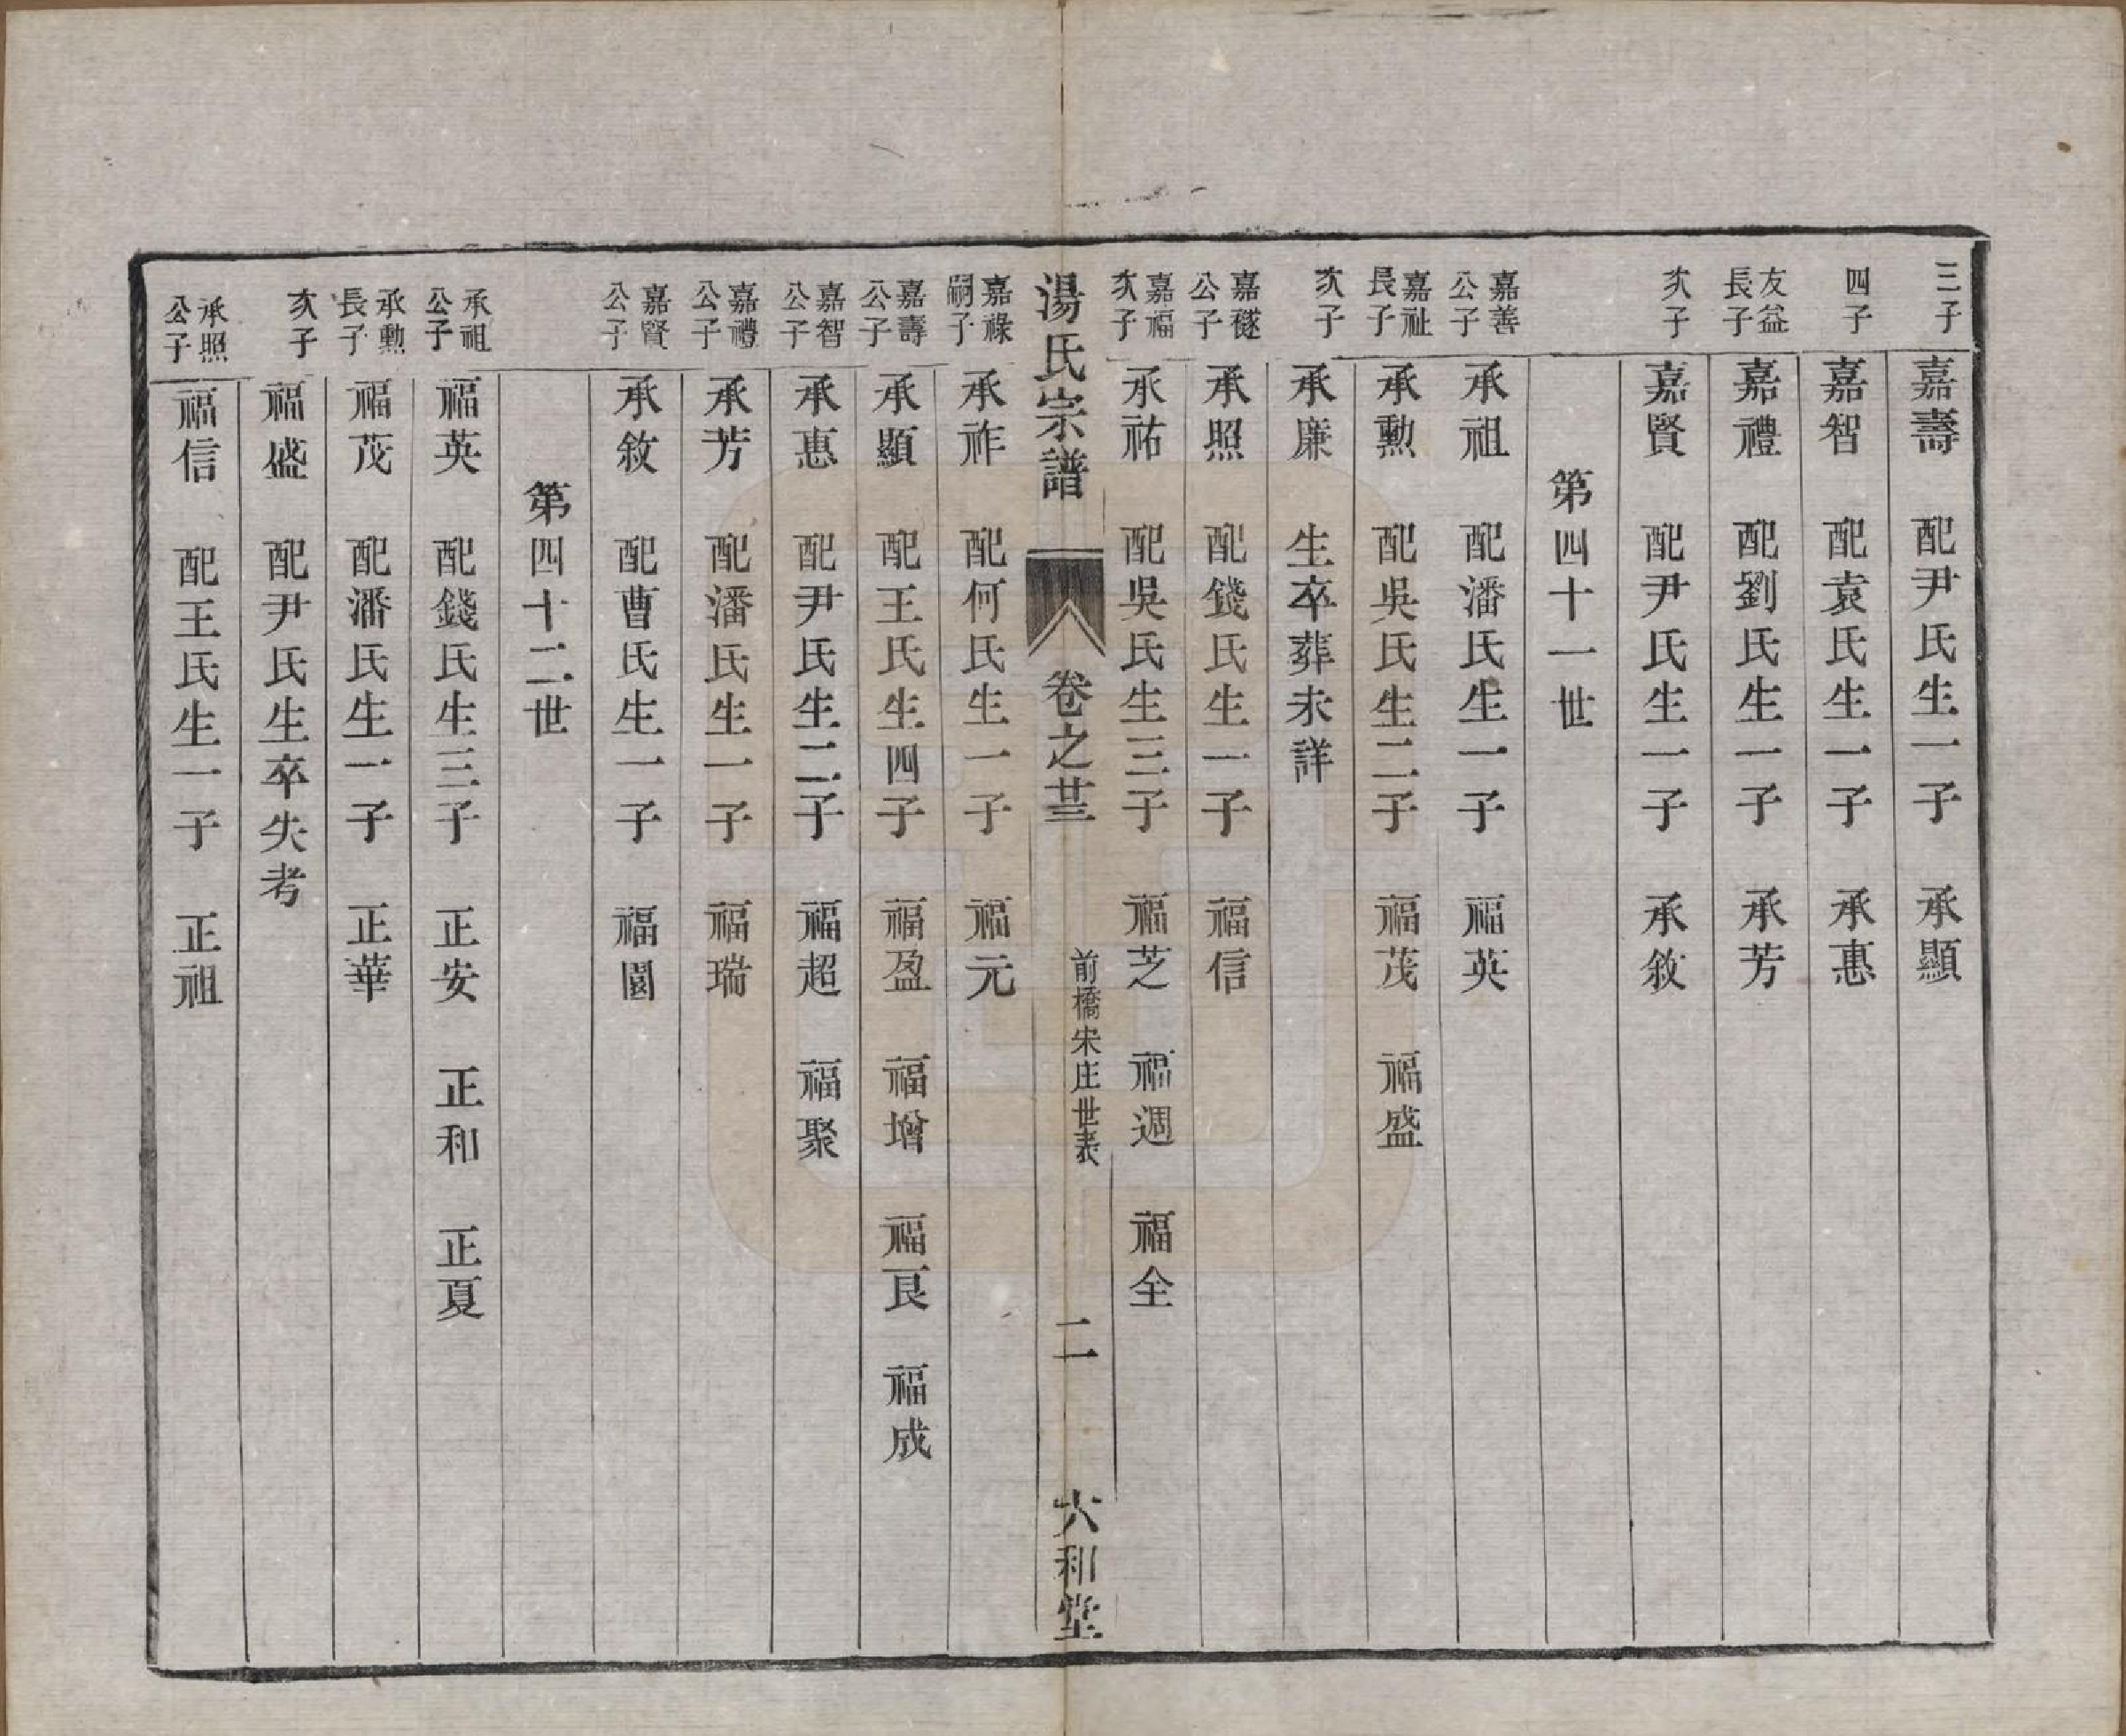 三子 嘉壽 配尹氏生一子 承顯
四子 嘉智 配袁氏生一子 承惠
友益長子 嘉禮 配劉氏生一子 承芳
次子 嘉賢 配尹氏生一子 承敘
第四十一世
嘉善公子 承祖 配潘氏生一子 福英
嘉祉長子 承勳 配吳氏生二子 福茂 福盛
次子 承廉 生卒葬未詳
嘉禭公子 承照 配錢氏生一子 福信
嘉福次子 承祐 配吳氏生三子 福芝 福週 福全
湯氏宗譜 卷之廿三 前橋宋庄世表 二 六和堂
嘉祿嗣子 承祚 配何氏生一子 福元
嘉壽公子 承顯 配王氏生四子 福盈 福增 福艮 福成
嘉智公子 承惠 配尹氏生二子 福超 福聚
嘉禮公子 承芳 配潘氏生一子 福瑞
嘉賢公子 承敘 配曹氏生一子 福園
第四十二世
承祖公子 福英 配錢氏生三子 正安 正和 正夏
承勳長子 福茂 配潘氏生一子 正華
次子 福盛 配尹氏生卒失考
承照公子 福信 配王氏生一子 正祖